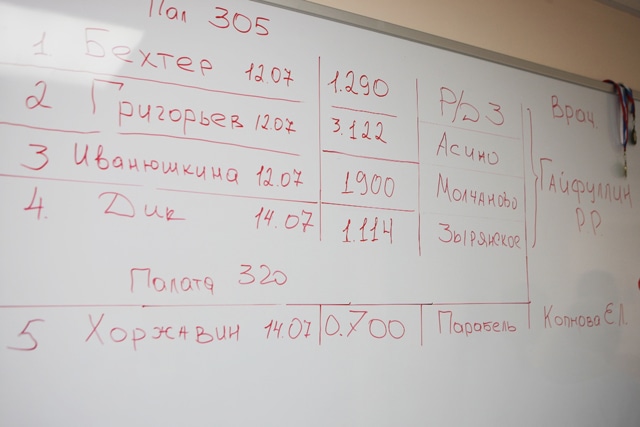 Пал 305
1. Бехтер 12.07 1.290 Р/Д 3 Врач.
2 Григорьев 12.07 3.122 Асино Гайфуллин
3 Иванюшкина 12.07 1900 Молчаново РР
4. Дик 14.07 1.114 Зырянское
Палата 320
5 Хоржавин 14.07 0.700 Парабель Копнова Е.Л